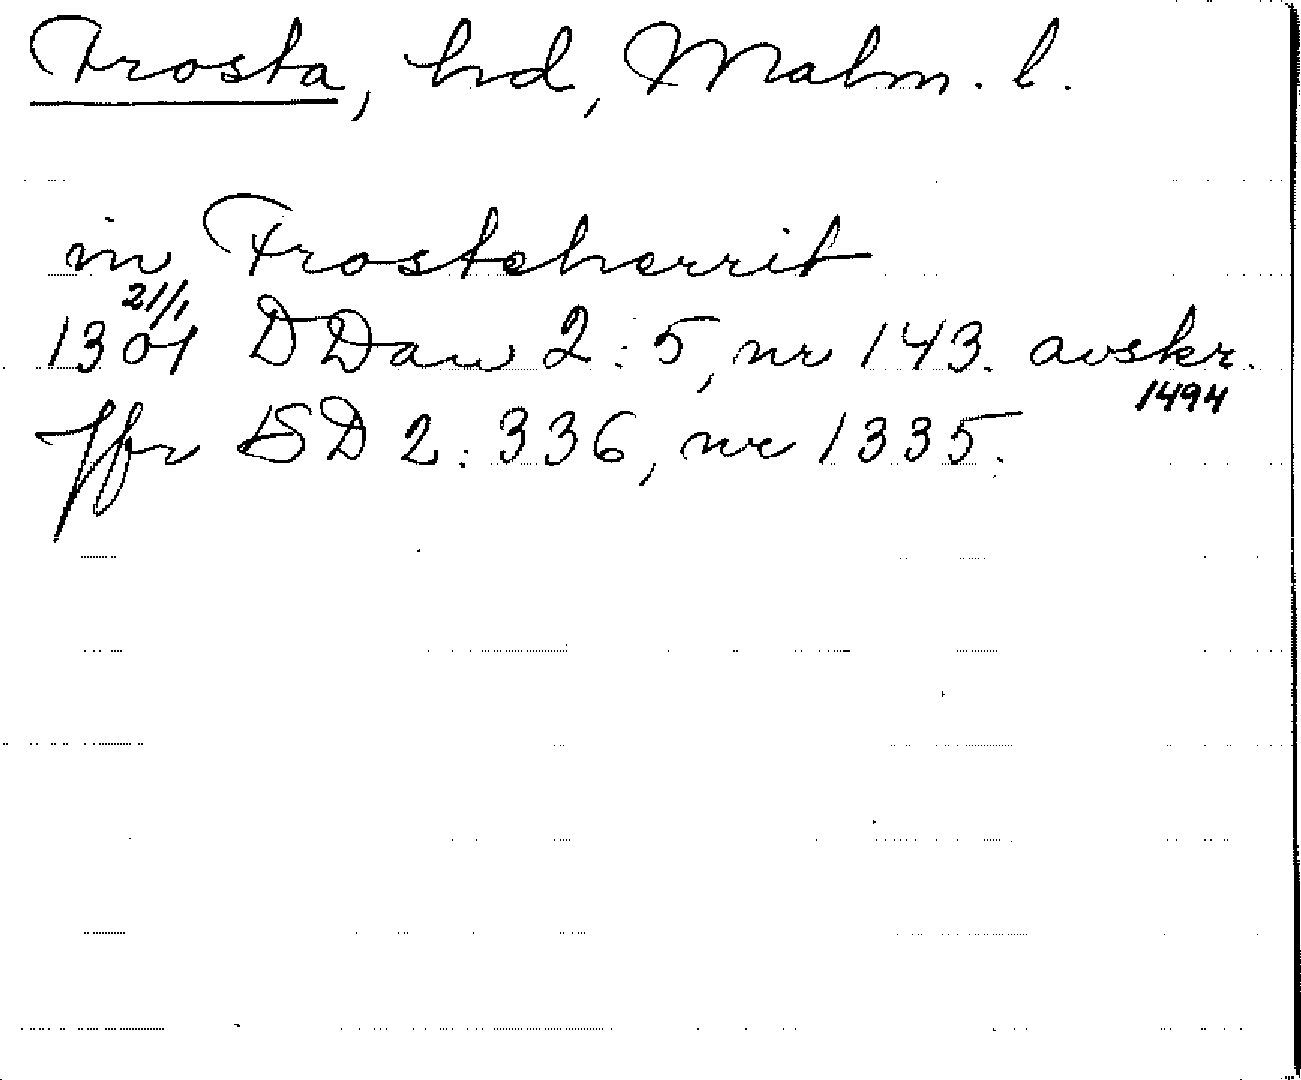 Frosta, hd, Malm. l.
in Frosteherrit
21/1
1301 DDan 2:5, nr 143. avskr.
1494
Jfr SD 2:336, nr 1335.